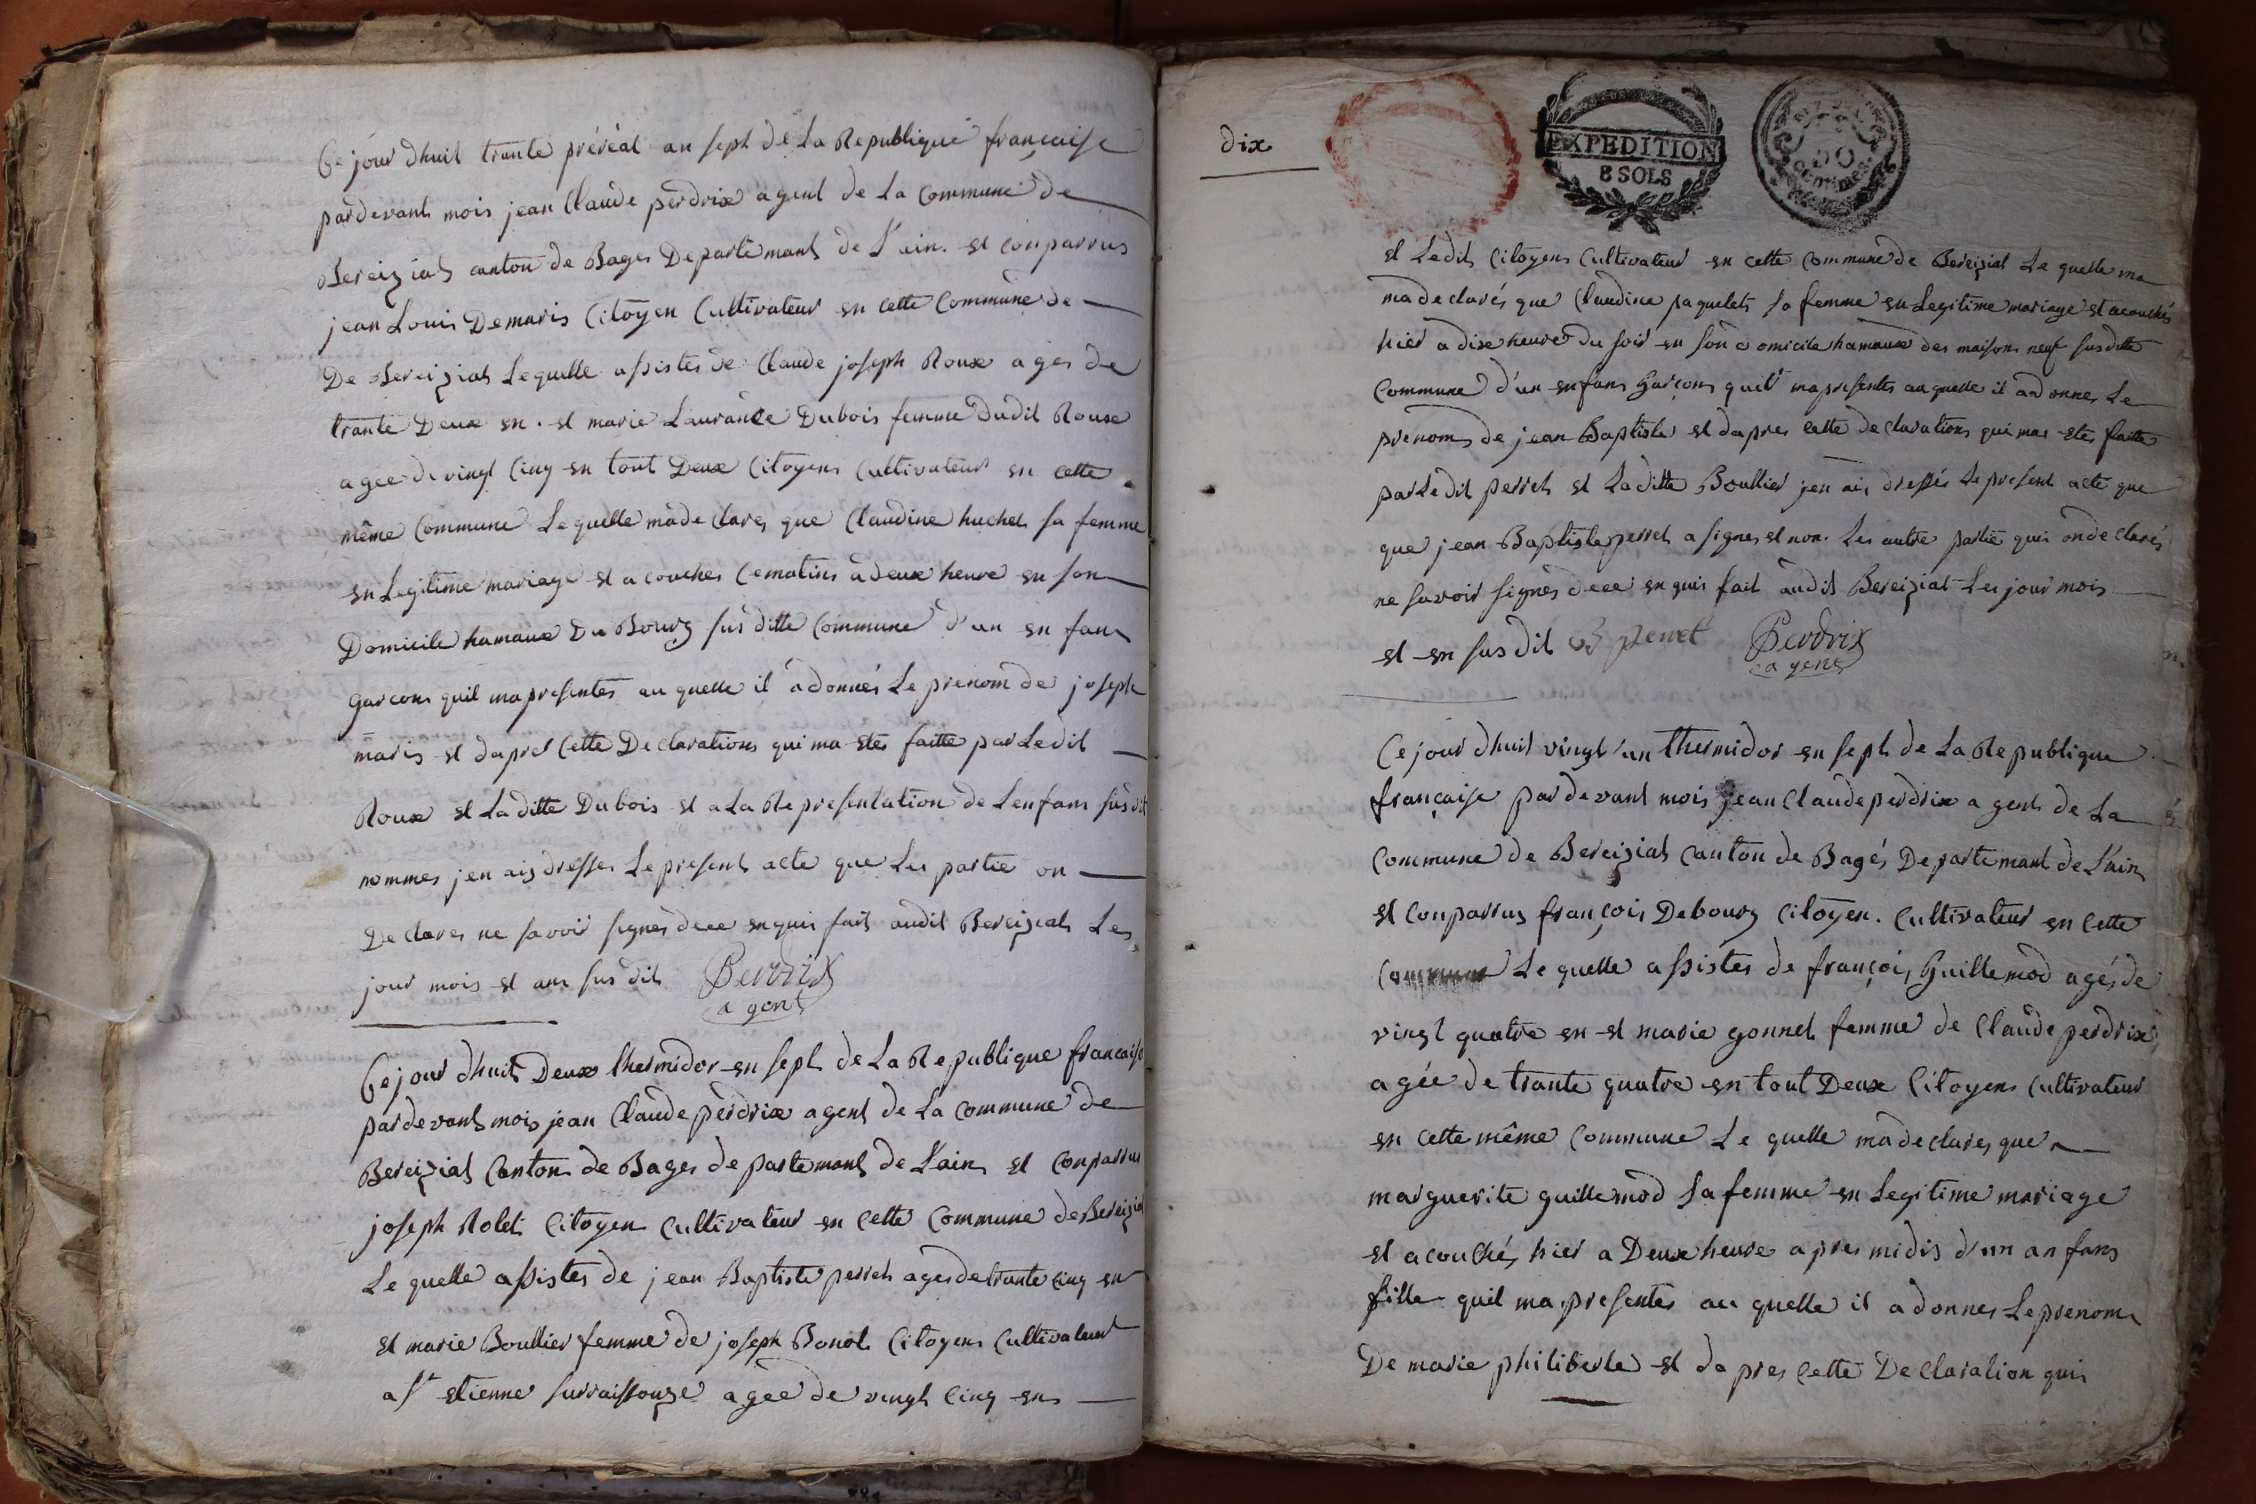 Ce jour dhuit trante préréal an sept de La Republique françaisse
pardevant mois jean Claude perdrix agent de La Commune de
Bereiziat canton de Bages Departemant de L'ain. et conparrus
jean Louis Demaris Citoyen Cultivateur en cette Commune de
De Bereiziat Lequelle assistes de Claude joseph Roux ages de
trante Deux en. et marie Laurance Dubois femme Dudit Roux
agee de vingt Cinq en tout Deux Citoyens Cultivateur en cette
même Commune Lequelle ma declares que Claudine huchet sa femme
en Legitime mariage et acouches Cematins a deux heure en son
Domicile hamaux Du Bourg susditte Commune d'un enfan
garcons quil mapresentes au quelle il a donnés Le prenom de joseph
maris et dapres Cette Declarations qui ma etes faitte par Ledit
Roux et Laditte Dubois et a La Representation de Lenfans susdit
nommes jen ais dresses Le present acte que Les partie on
Declares ne savoir signes deee enquis fait audit Bereiziat Les
jour mois et ans susdit Perdrix
agent
Ce jour dhuit Deux thermidor en sept de La Republique francaise
pardevant mois jean Claude perdrix agent de La Commune de
Bereiziat Canton de Bages departemant de L'ain et Conparrus
joseph Rolet Citoyen Cultivateur en cette Commune de Bereiziat
Le quelle assistes de jean Baptiste perret ages de trante Cinq en
et marie Boullier femme de joseph Bonot Citoyens Cultivateur
a St etienne surraissouze agee de vingt Cinq ens
dix
EXPEDITION
8 SOLS
50
centimes
et Ledit Citoyens Cultivateur en cette Commune de Bereiziat Le quelle ma
ma declarés que Claudine paquelet sa femme en Legitime mariage et acouchés
hier a dix heure du soir en son domicile hamaux des maisons neuf susditte
Commune d'un enfans garçons quil mapresentes auquelle il a donnes Le
prenoms de jean Baptiste et dapres cette declarations qui mas etes faitte
par Ledit perret et Laditte Boullier jen ais dressés Le present acte que
que jean Baptiste perret a signes et non Les autre partie quis on declarés
ne savoir signés deee enquis fait audit Bereiziat Les jour mois
et en susdit B perret Perdrix
agent
Ce jour dhuit vingt un thermidor en sept de La Republique
française pardevant mois jean Claude perdrix agent de La
Commune de Bereiziat Canton de Bagés Departemant de L'ain
et Conparrus françois Debourg Citoyen. Cultivateur en Cette
Commune Le quelle assistes de françois Guillemod agés de
vingt quatre en et marie gonnet femme de Claude perdrix
agée de trante quatre en tout Deux Citoyens Cultivateur
en cette même Commune Le quelle ma declares que
marguerite guillemod sa femme en Legitime mariage
et acouchés hier a Deux heure apres midis d'un anfans
fille quil ma presentes au quelle il a donnes Le prenom
De marie philiberte et dapres Cette Declaration quis